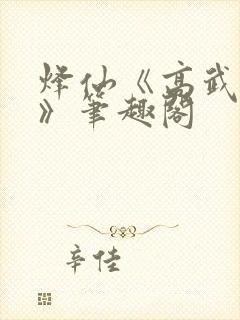 烽仙《高武
》笔趣阁
辛佳